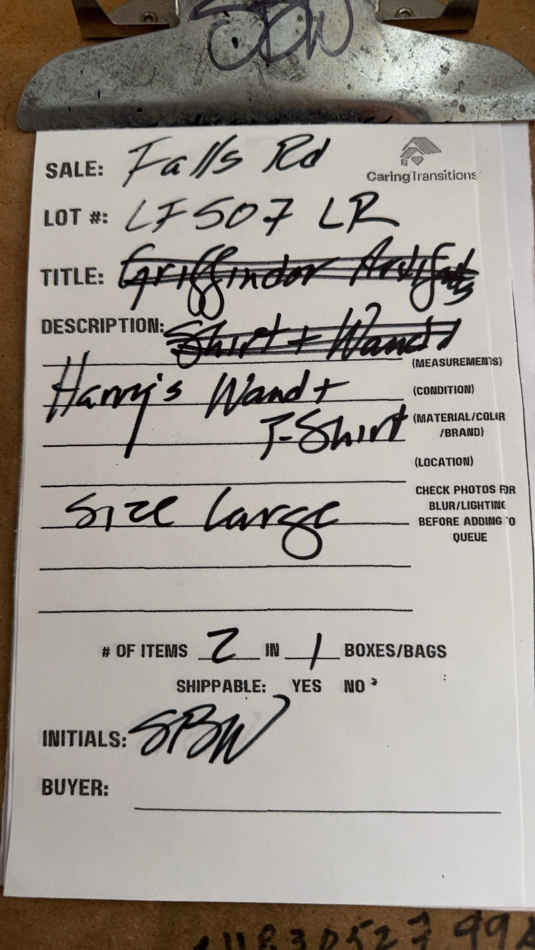 SBW
SALE: Falls Rd
CaringTransitions
LOT #: LF507 LR
TITLE: Griffindor Artifacts
DESCRIPTION: Shirt + Wand
(MEASUREMENTS)
Harry's Wand +
(CONDITION)
T-Shirt
(MATERIAL/COLOR
/BRAND)
(LOCATION)
Size large
CHECK PHOTOS FOR
BLUR/LIGHTING
BEFORE ADDING TO
QUEUE
# OF ITEMS 2 IN 1 BOXES/BAGS
SHIPPABLE: YES NO
INITIALS: SBW
BUYER: